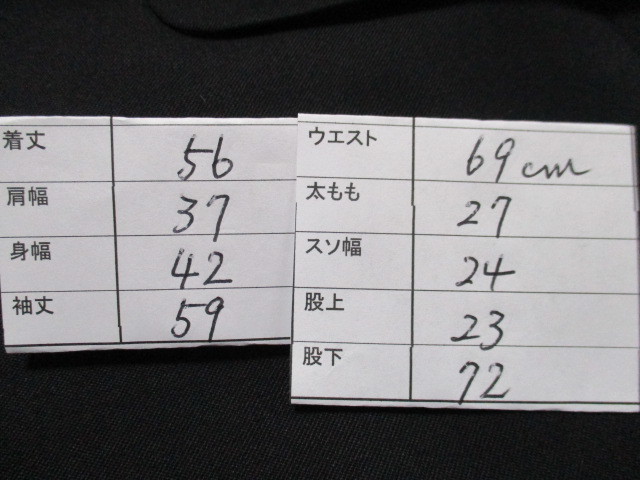 着丈 56
肩幅 37
身幅 42
袖丈 59
ウエスト 69cm
太もも 27
スソ幅 24
股上 23
股下 72